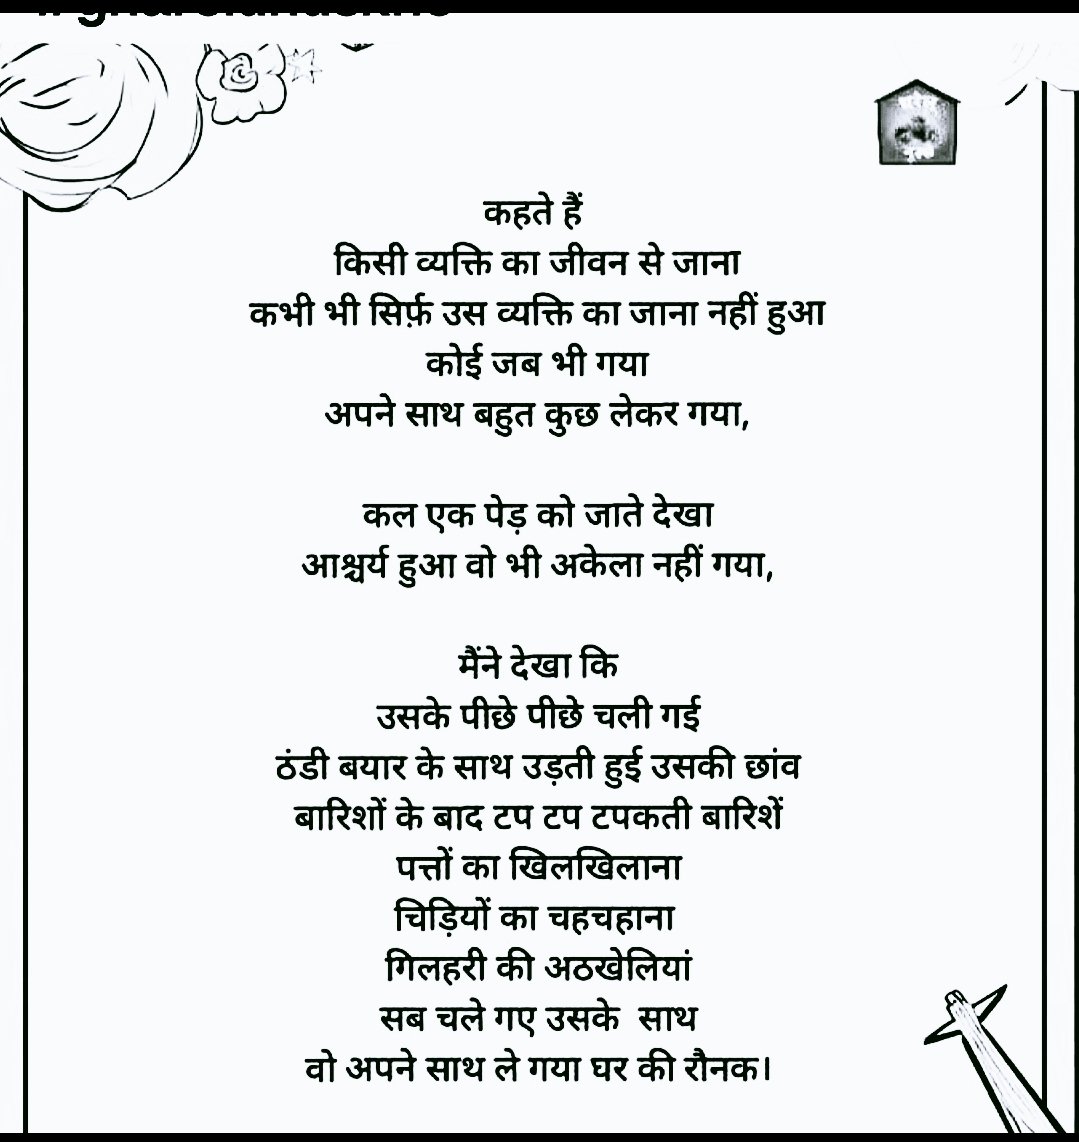 कहते हैं
किसी व्यक्ति का जीवन से जाना
कभी भी सिर्फ़ उस व्यक्ति का जाना नहीं हुआ
कोई जब भी गया
अपने साथ बहुत कुछ लेकर गया,
कल एक पेड़ को जाते देखा
आश्चर्य हुआ वो भी अकेला नहीं गया,
मैंने देखा कि
उसके पीछे पीछे चली गई
ठंडी बयार के साथ उड़ती हुई उसकी छांव
बारिशों के बाद टप टप टपकती बारिशें
पत्तों का खिलखिलाना
चिड़ियों का चहचहाना
गिलहरी की अठखेलियां
सब चले गए उसके साथ
वो अपने साथ ले गया घर की रौनक।